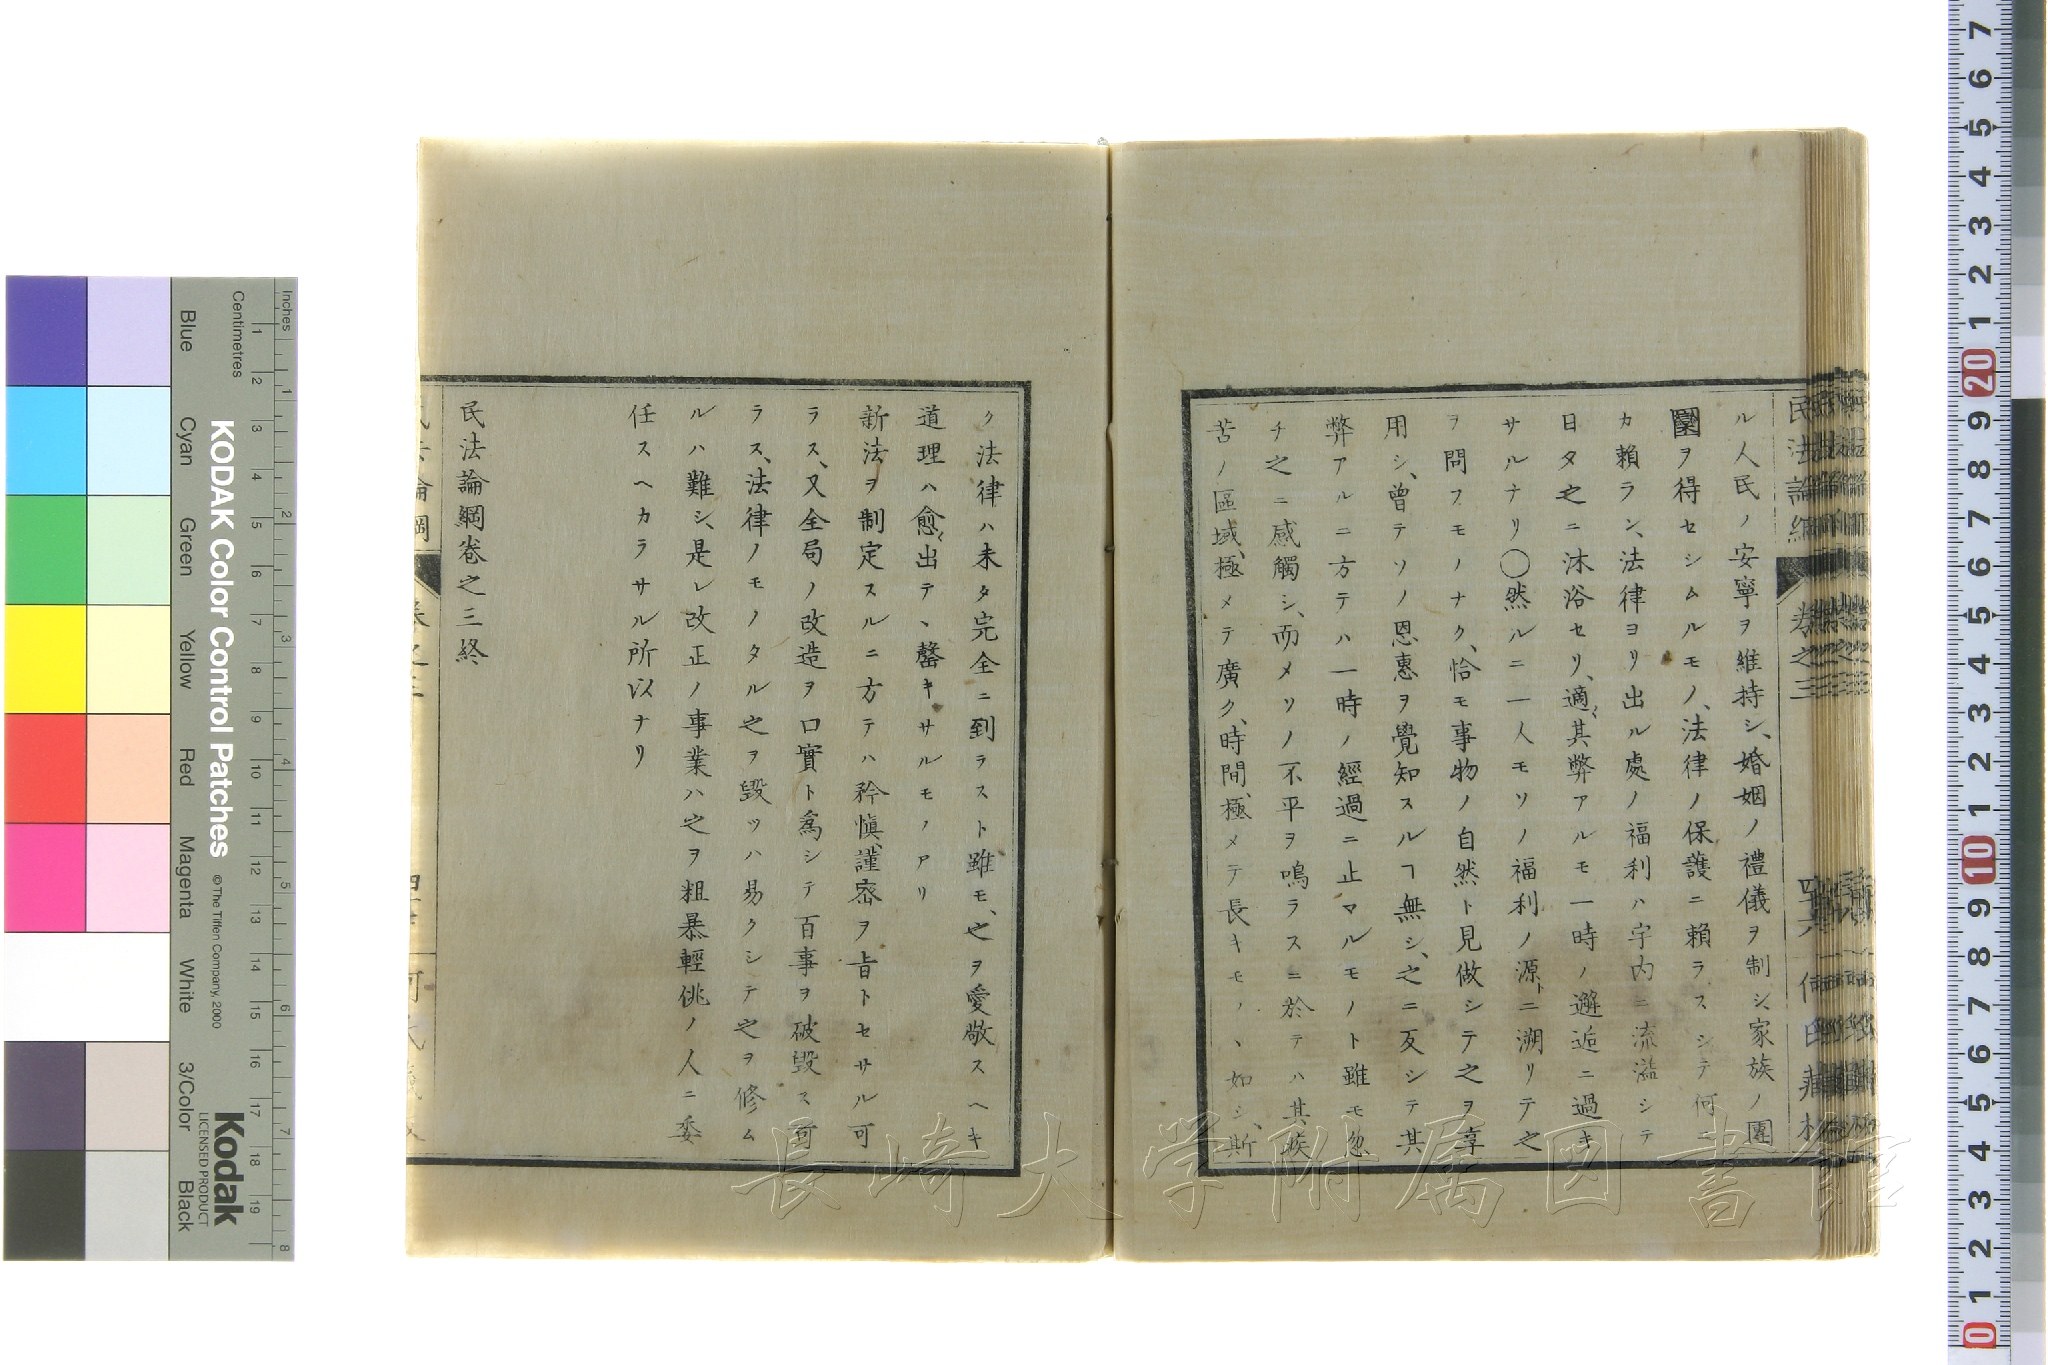 ル人民ノ安寧ヲ維持シ、婚姻ノ禮儀ヲ制シ家族ノ團
圝ヲ得セシムルモノ、法律ノ保護ニ賴ラスシテ何ニ
カ賴ラン、法律ヨリ出ル處ノ福利ハ宇内ニ流溢シテ
日夕之ニ沐浴セリ、適〻其弊アルモ一時ノ邂逅ニ過キ
サルナリ〇然ルニ一人モソノ福利ノ源ニ溯リテ之
ヲ問フモノナク、恰モ事物ノ自然ト見做シテ之ヲ享
用シ、曾テソノ恩惠ヲ覺知スルヿ無シ、之ニ反シテ其
弊アルニ方テハ一時ノ經過ニ止マルモノト雖モ忽
チ之ニ感觸シ、而メソノ不平ヲ鳴ラスニ於テハ其疾
苦ノ區域、極メテ廣ク、時間、極メテ長キモノヽ如シ、斯
民法論綱
卷之三
四十六
何氏藏板
ク法律ハ未タ完全ニ到ラスト雖モ、之ヲ愛敬スヘキ
道理ハ愈〻出テヽ罄キサルモノアリ
新法ヲ制定スルニ方テハ矜愼、謹密ヲ旨トセサル可
ラス、又全局ノ改造ヲ口實ト爲シテ百事ヲ破毀ス可
ラス、法律ノモノタル之ヲ毀ツハ易クシテ之ヲ修ム
ルハ難シ、是レ改正ノ事業ハ之ヲ粗暴輕佻ノ人ニ委
任スヘカラサル所以ナリ
民法論綱卷之三終
長崎大学附属図書館
KODAK Color Control Patches
© The Tiffen Company, 2000
Kodak
LICENSED PRODUCT
Inches
Centimetres
Blue
Cyan
Green
Yellow
Red
Magenta
White
3/Color
Black